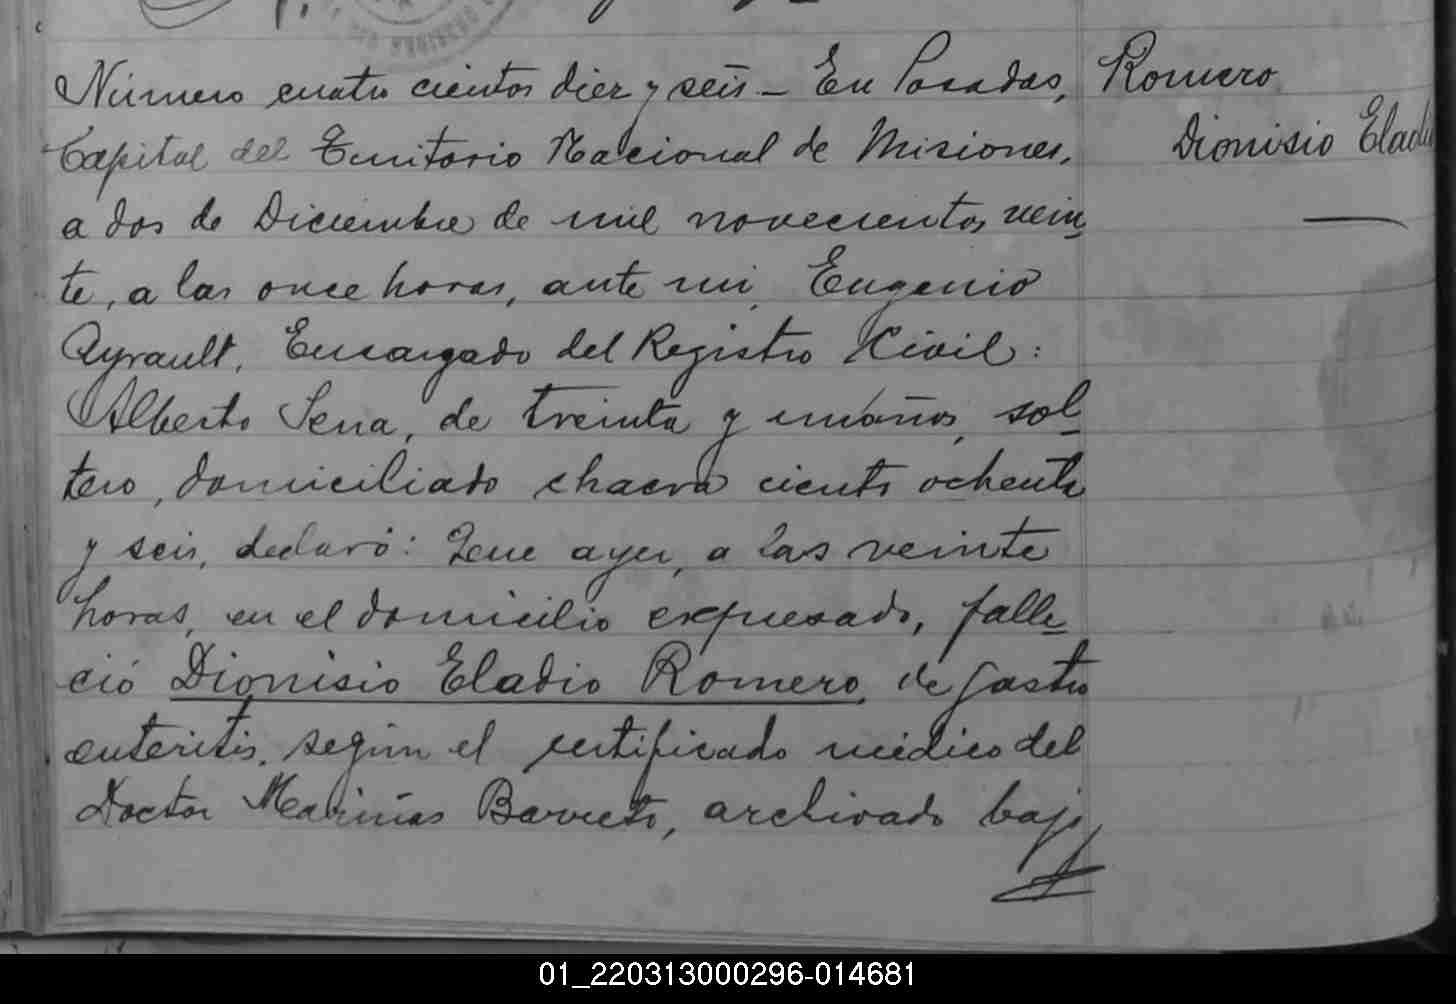 Número cuatro cientos diez y seis — En Posadas,
Romero
Capital del Territorio Nacional de Misiones,
Dionisio Eladio
a dos de Diciembre de mil novecientos vein
te, a las once horas, ante mi, Eugenio
Ayrault, Encargado del Registro Civil:
Alberto Sena, de treinta y un años, sol
tero, domiciliado chacra ciento ochenta
y seis, declaró: Que ayer, a las veinte
horas, en el domicilio expresado, falle
ció Dionisio Eladio Romero, de gastro
enteritis, según el certificado médico del
Doctor Mariños Barreto, archivado bajo
01_220313000296-014681